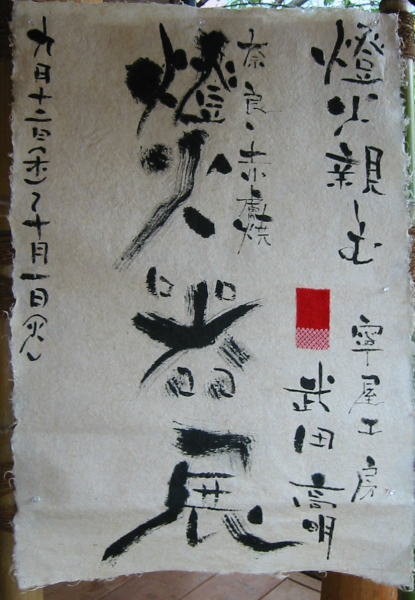 燈火親しむ
寧屋工房
武田高明
奈良・赤膚焼
燈火器展
九月十二日(木)〜十月一日(火)